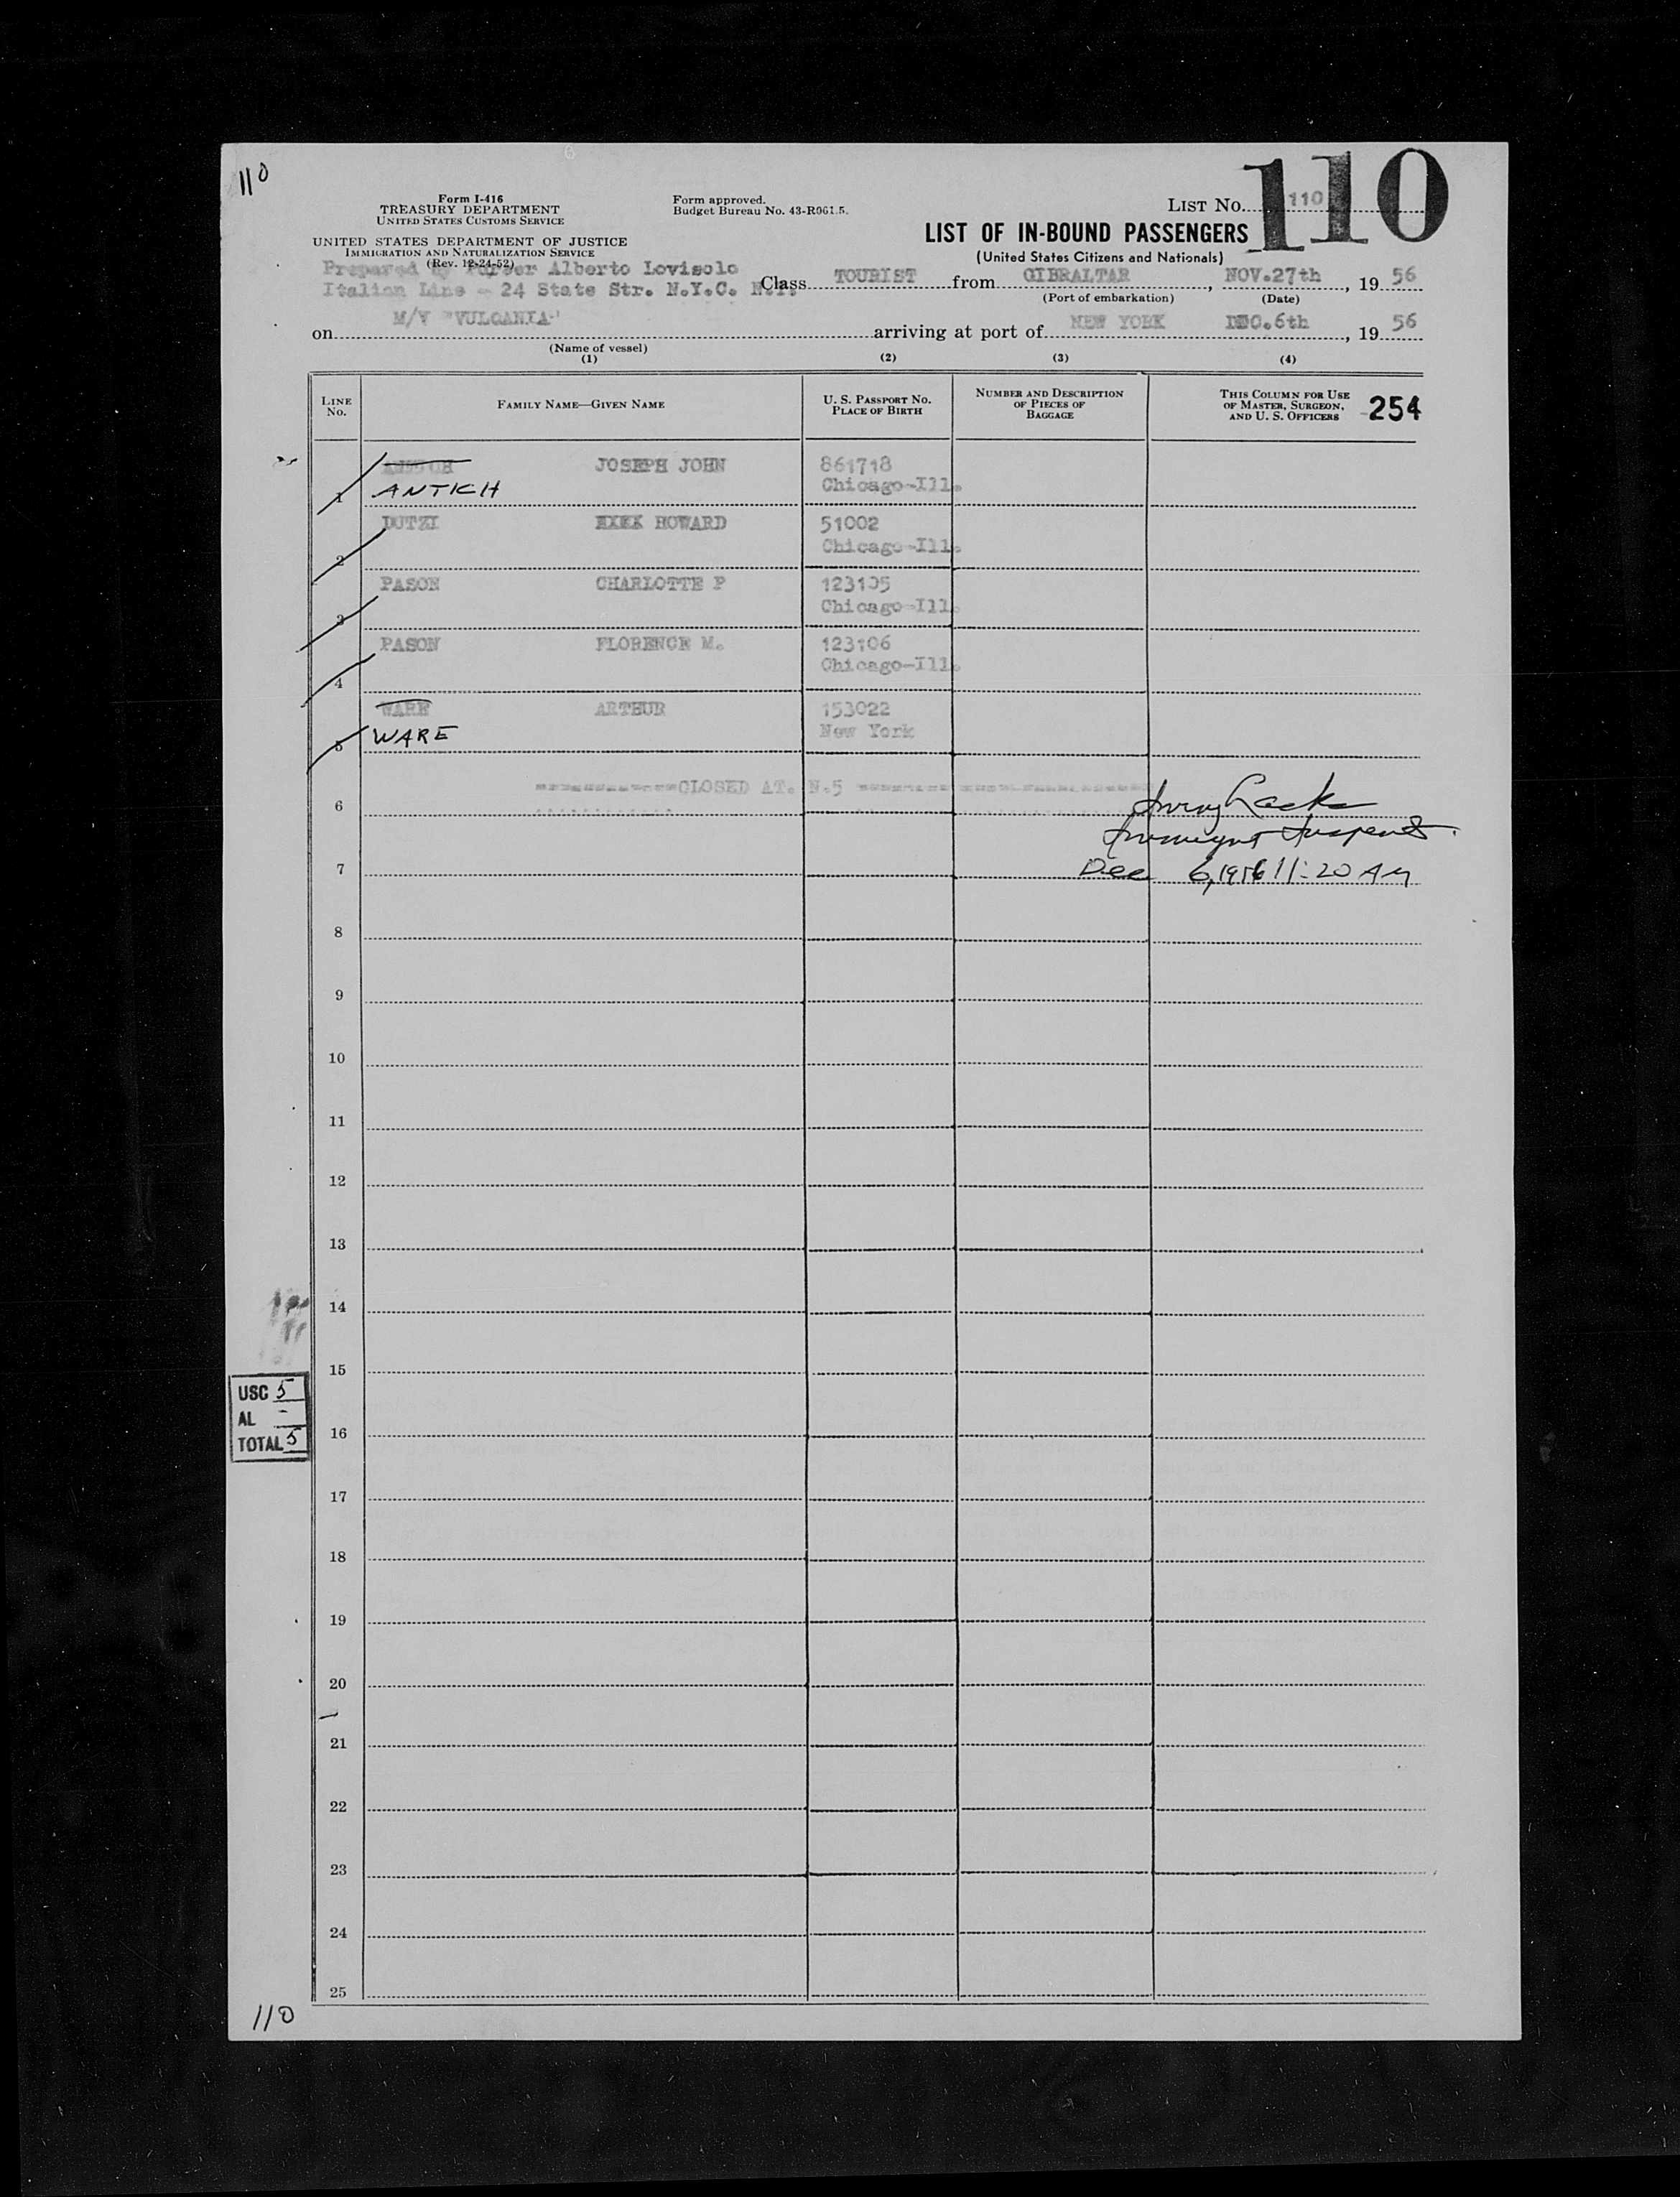 110
Form I-416
TREASURY DEPARTMENT
UNITED STATES CUSTOMS SERVICE
UNITED STATES DEPARTMENT OF JUSTICE
IMMIGRATION AND NATURALIZATION SERVICE
(Rev. 12-24-52)
Form approved.
Budget Bureau No. 43-R061.5.
LIST No. 110
110
LIST OF IN-BOUND PASSENGERS
(United States Citizens and Nationals)
Prepared by Purser Alberto Lovisolo
Italian Line - 24 State Str. N.Y.C. N.Y.
Class TOURIST from GIBRALTAR, NOV.27th, 19 56
(Port of embarkation) (Date)
on M/V "VULCANIA" arriving at port of NEW YORK DEC.6th, 19 56
(Name of vessel)
(1) (2) (3) (4)
LINE No. FAMILY NAME—GIVEN NAME U. S. PASSPORT No. PLACE OF BIRTH NUMBER AND DESCRIPTION OF PIECES OF BAGGAGE THIS COLUMN FOR USE OF MASTER, SURGEON, AND U. S. OFFICERS 254
JOSEPH JOHN 861718
1 ANTICH Chicago-Ill.
DUTZI HOWARD 51002
2 Chicago-Ill.
PASON CHARLOTTE P 123105
3 Chicago-Ill.
PASON FLORENCE M. 123106
4 Chicago-Ill.
WARE ARTHUR 153022
5 WARE New York
CLOSED AT. N.5
6
Dec 6, 1956 11:20 AM
7
8
9
10
11
12
13
14
15
USC 5
AL -
TOTAL 5
16
17
18
19
20
21
22
23
24
25
110